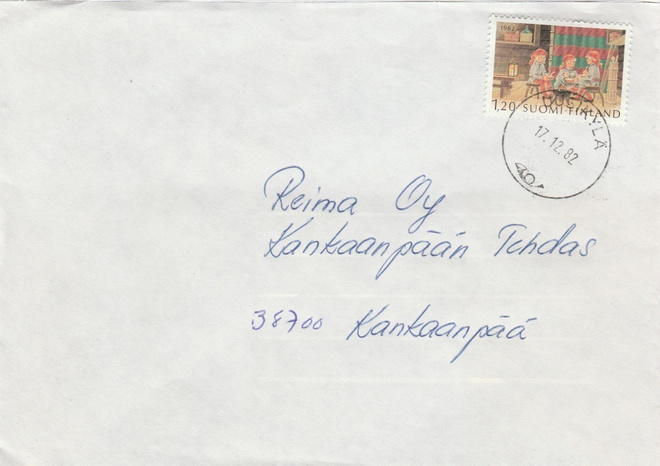 1982
1,20 SUOMI FINLAND
17.12.82
Reima Oy
Kankaanpään Tehdas
38700 Kankaanpää